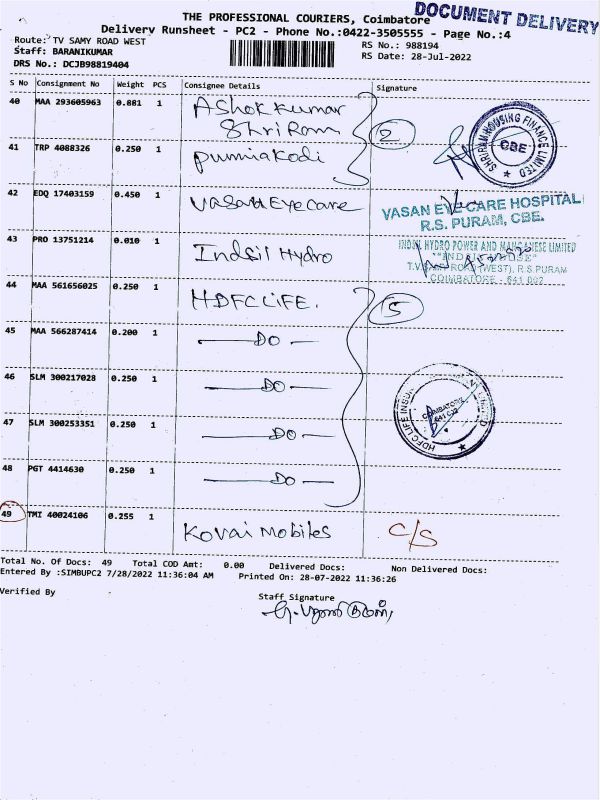 DOCUMENT DELIVERY
THE PROFESSIONAL COURIERS, Coimbatore
Delivery Runsheet - PC2 - Phone No.:0422-3505555 - Page No.:4
Route: TV SAMY ROAD WEST
RS No.: 988194
Staff: BARANIKUMAR
RS Date: 28-Jul-2022
DRS No.: DCJB98819404
S No Consignment No Weight PCS Consignee Details Signature
40 MAA 293605963 0.881 1 Ashok kumar
Shri Ram
2
SHRIRAM HOUSING FINANCE LIMITED
CBE
41 TRP 4088326 0.250 1
42 EDQ 17403159 0.450 1 Vasan Eye care
VASAN EYE CARE HOSPITAL
R.S. PURAM, CBE.
43 PRO 13751214 0.010 1 Indsil Hydro
INDSIL HYDRO POWER AND MANGANESE LIMITED
T.V. SAMY ROAD (WEST), R.S. PURAM
COIMBATORE - 641 002
44 MAA 561656025 0.250 1 HDFC LiFE.
5
45 MAA 566287414 0.200 1 DO
46 SLM 300217028 0.250 1 DO
47 SLM 300253351 0.250 1 DO
HDFC LIFE
COIMBATORE
48 PGT 4414630 0.250 1 DO
49 TMI 40024106 0.255 1 Kovai Mobiles C/S
Total No. Of Docs: 49 Total COD Amt: 0.00 Delivered Docs: Non Delivered Docs:
Entered By :SIMBUPC2 7/28/2022 11:36:04 AM Printed On: 28-07-2022 11:36:26
Verified By
Staff Signature